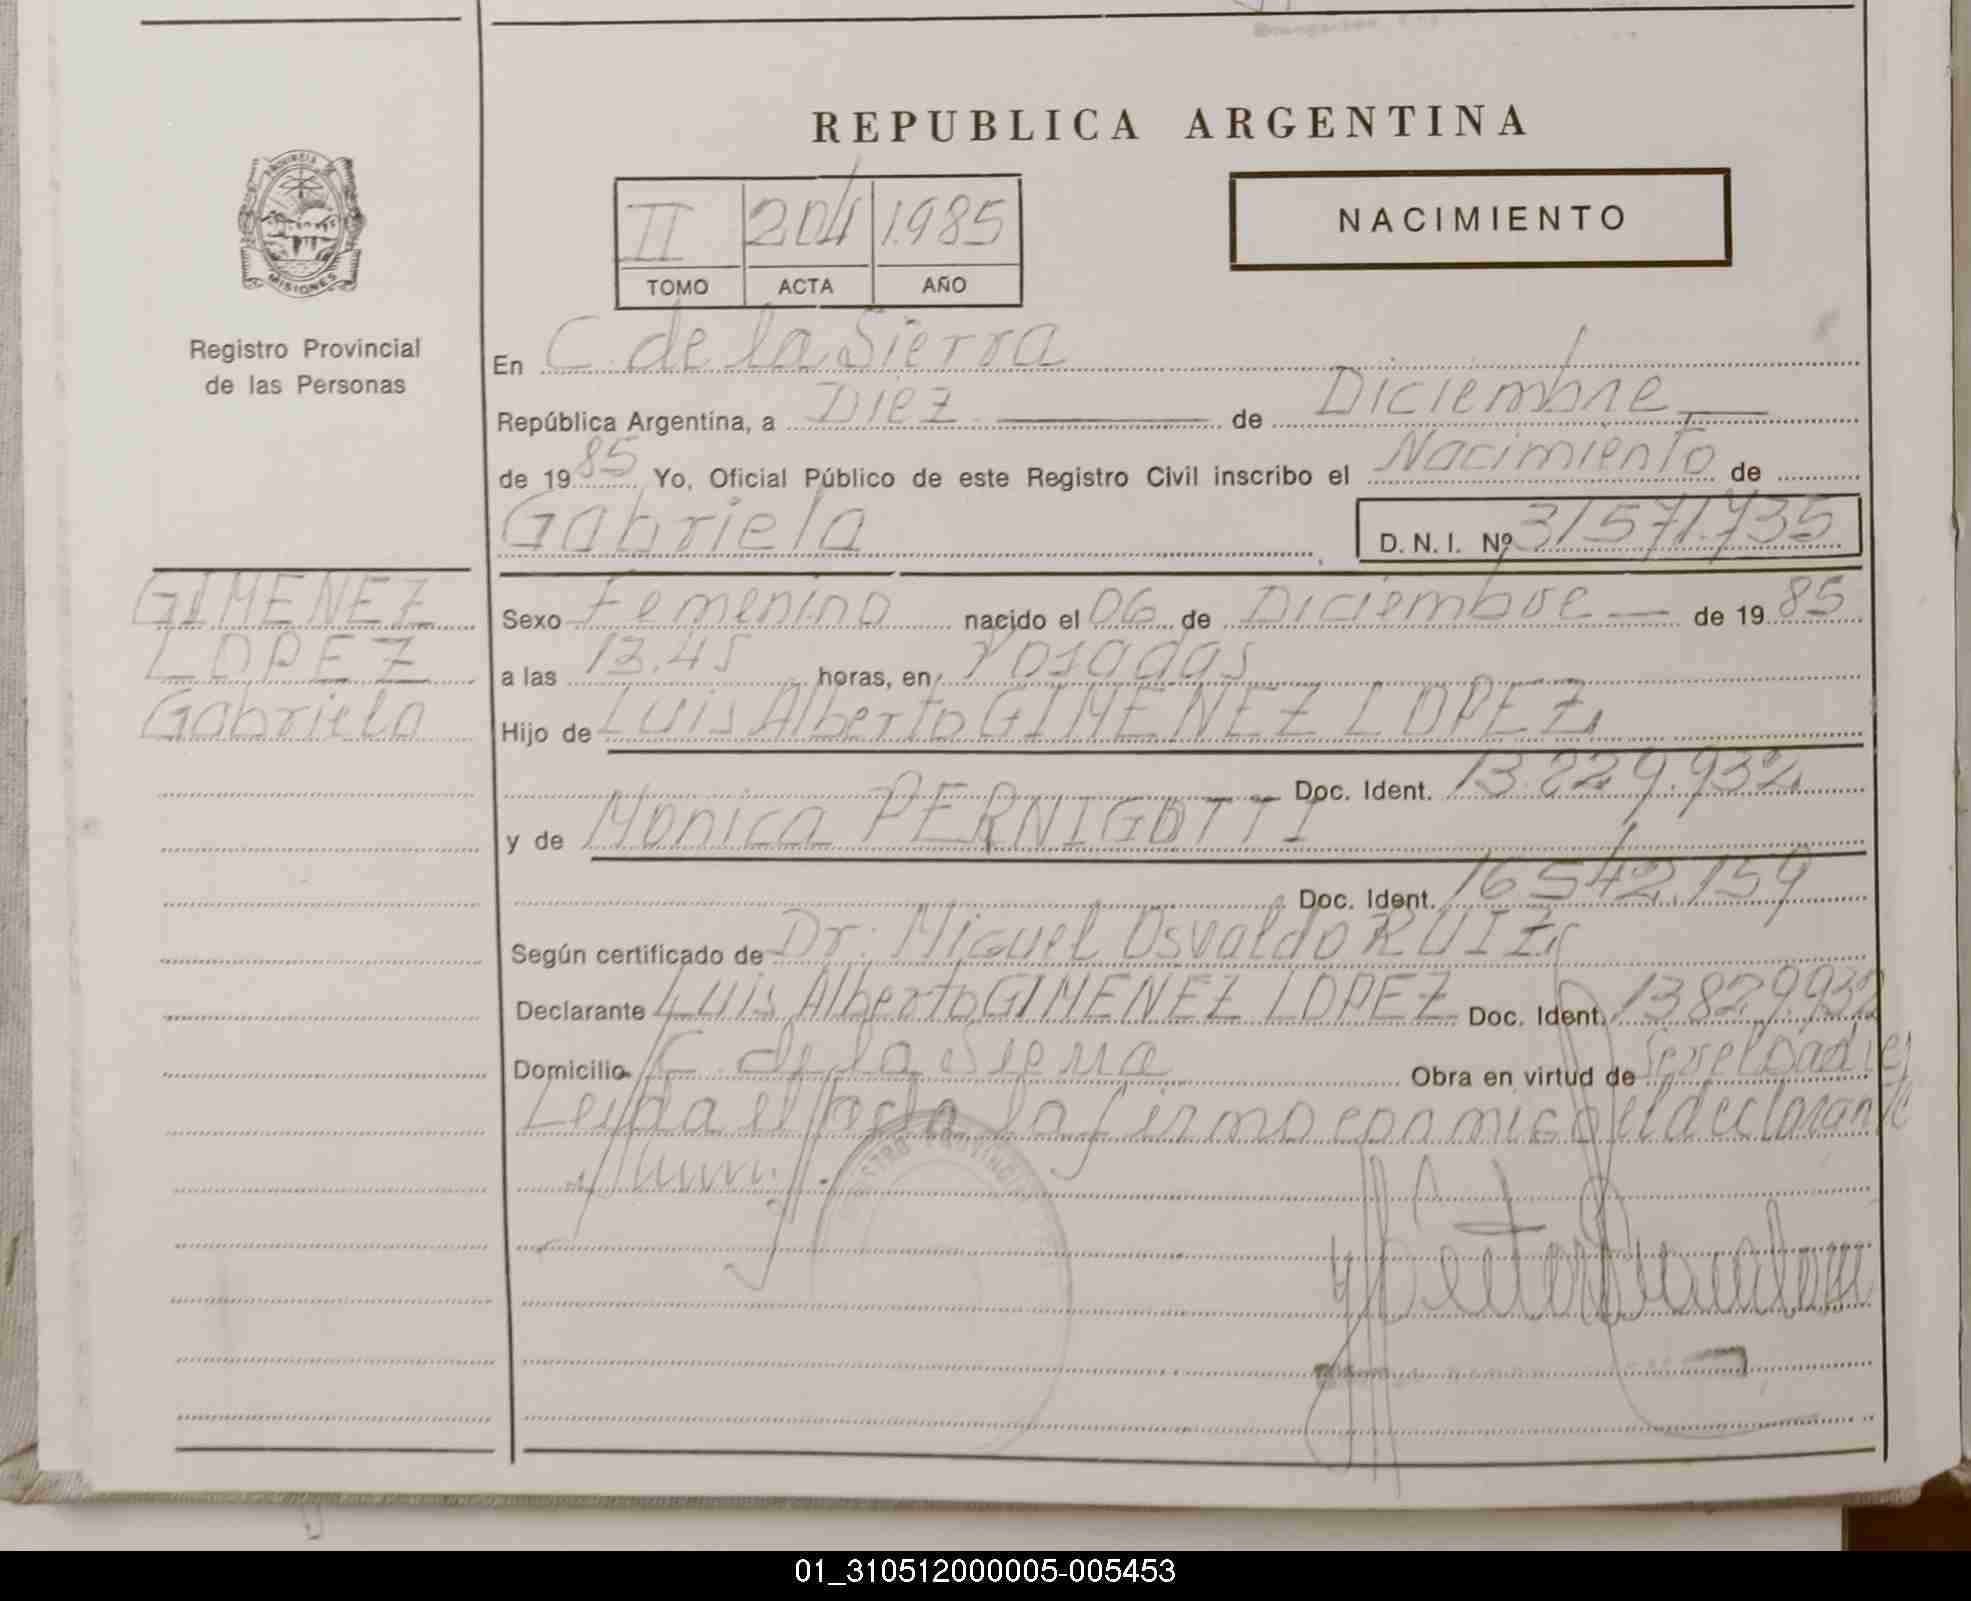 REPUBLICA ARGENTINA
PROVINCIA DE
MISIONES
Registro Provincial
de las Personas
II 204 1.985
TOMO ACTA AÑO
NACIMIENTO
En C. de la Sierra
República Argentina, a Diez de Diciembre
de 1985 Yo, Oficial Público de este Registro Civil inscribo el Nacimiento de
Gabriela D. N. I. Nº 31571.735
GIMENEZ
LOPEZ
Gabriela
Sexo Femenino nacido el 06 de Diciembre de 1985
a las 13.45 horas, en Posadas
Hijo de Luis Alberto GIMENEZ LOPEZ
Doc. Ident. 13.829.932
y de Monica PERNIGOTTI
Doc. Ident. 16542.159
Según certificado de Dr. Miguel Osvaldo RUIZ
Declarante Luis Alberto GIMENEZ LOPEZ Doc. Ident. 13829.932
Domicilio C. de la Sierra Obra en virtud de
Leida el acta la firma conmigo el declarante
01_310512000005-005453